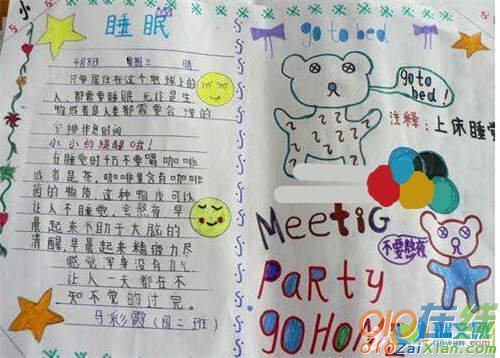 小
睡眠
4月8日 星期三 晴
只要居住在这个地球上的
人都需要睡眠,无论是生
物或者是人类都需要合理的
安排作息时间
小小的提醒哦!
在睡觉时千万不要喝咖啡
或者是茶,咖啡里含有咖啡
因的物质,这种物质可以
让人不睡觉,
早晨起来不助于大脑的
清醒,早晨起来精疲力尽
感觉浑身没有力气
让人一天都在不
知不觉的过完。
马彩霞(四二班)
go to bed
go to
bed!
注释:上床睡觉
Meetig
PaRty
go Home
不要熬夜
gozaixian.com